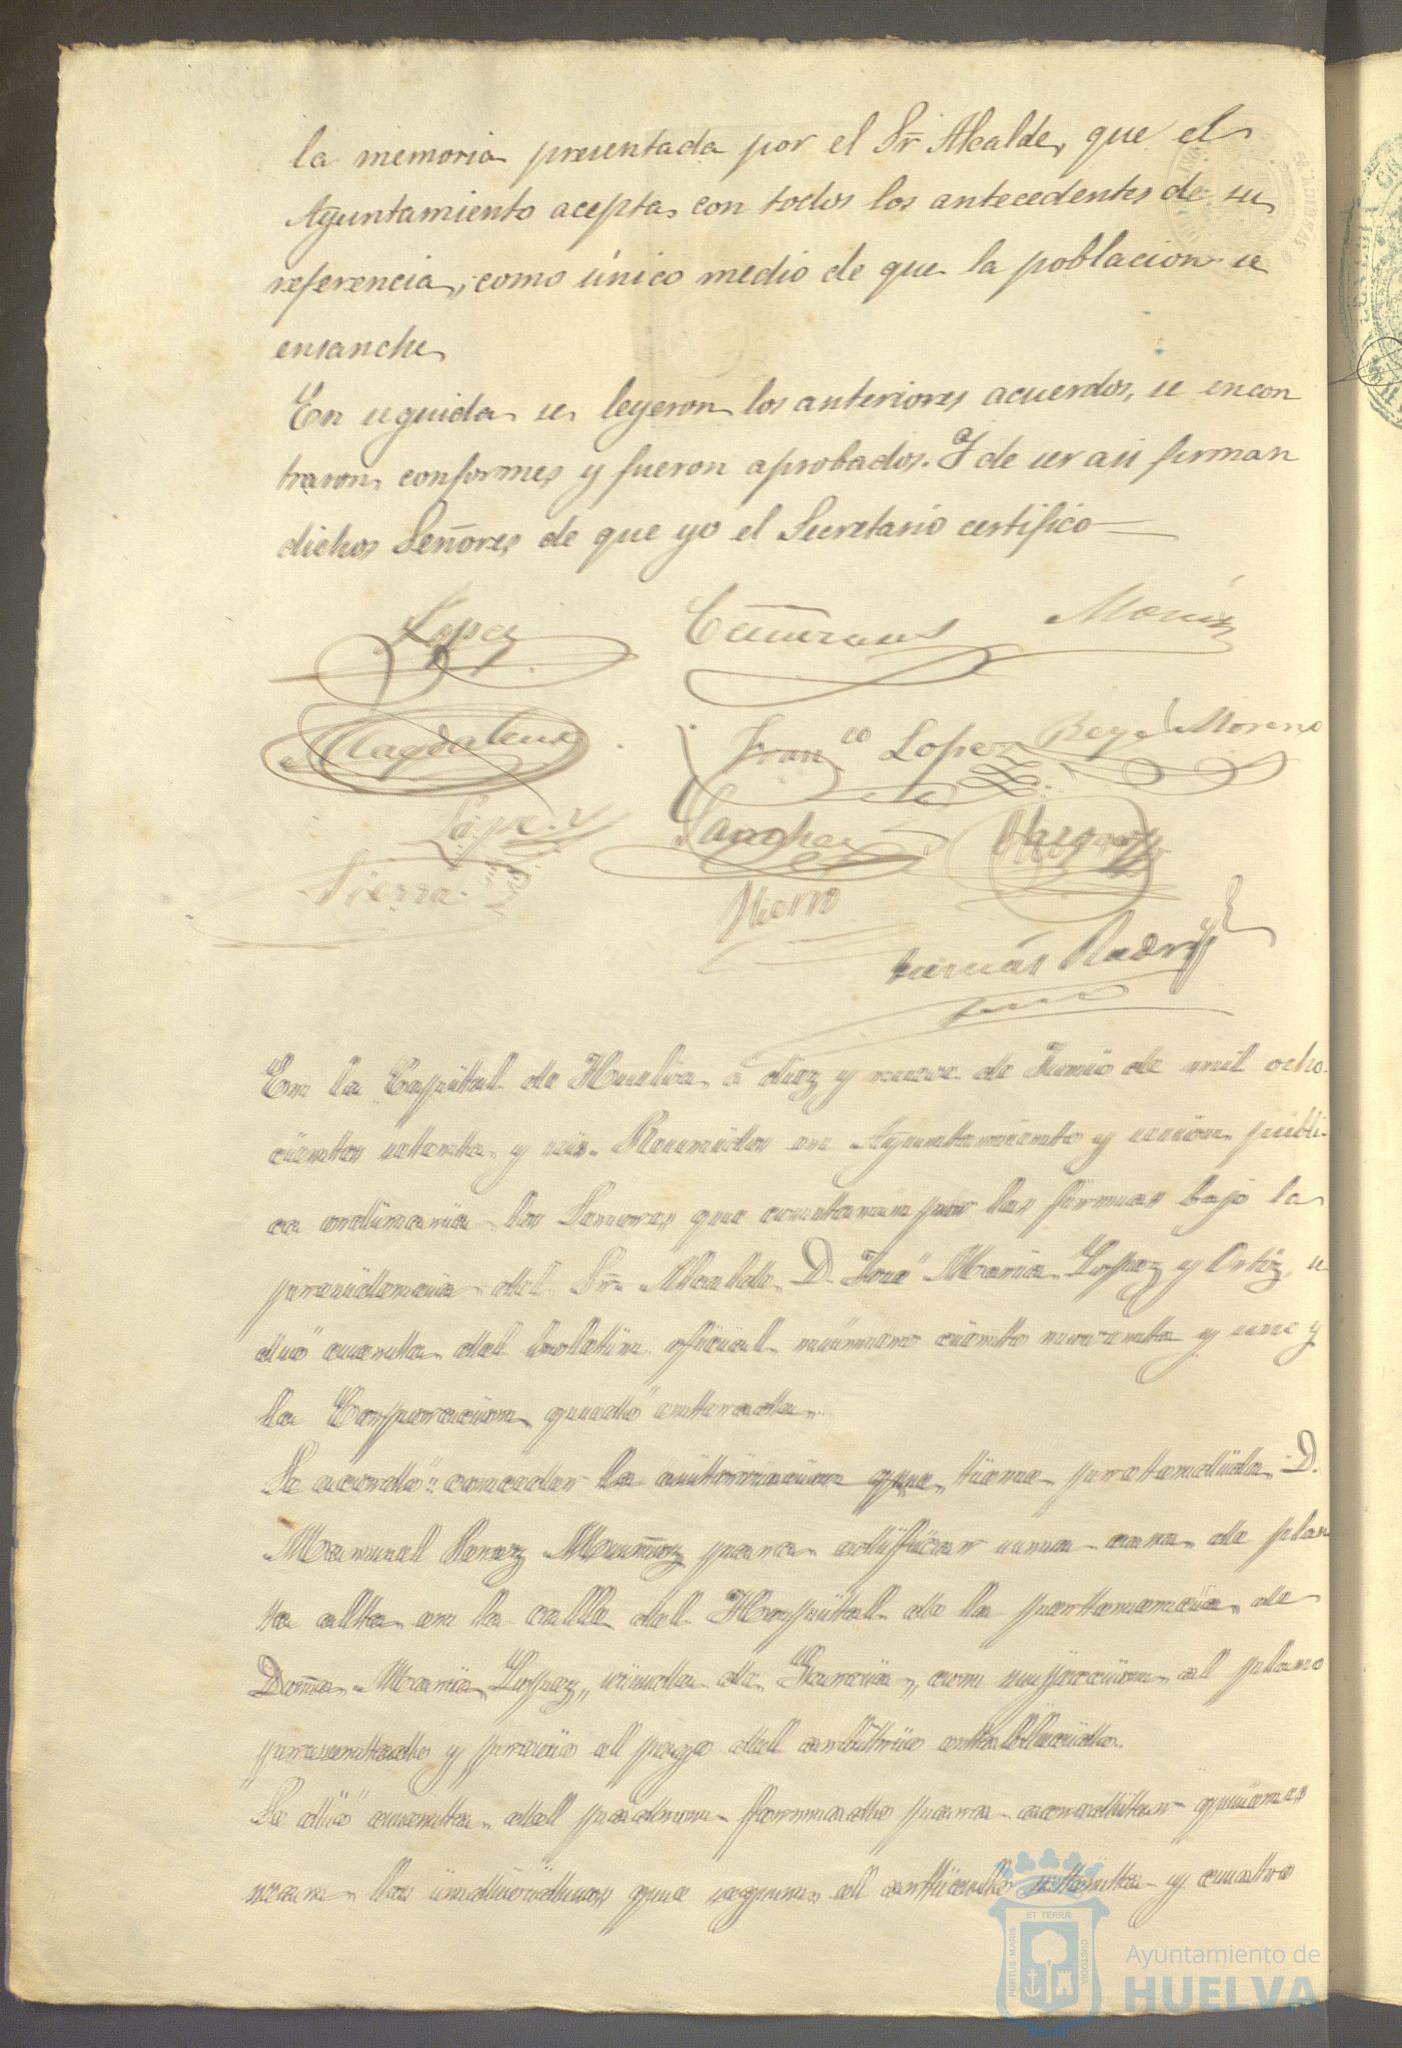 la memoria presentada por el Sr Alcalde, que el
Ayuntamiento acepta con todos los antecedentes de su
referencia, como único medio de que la poblacion se
ensanche
En seguida se leyeron los anteriores acuerdos, se encon
traron conformes y fueron aprobados. Y de ser asi firman
dichos Señores de que yo el Secretario certifico
Lopez
Magdalena
Fran.co Lopez Rey Moreno
López Sanchez Vargas
Sierra
Hierro
En la Capital de Huelva á diez y nueve de Junio de mil ocho
cientos setenta y seis. Reunidos en Ayuntamiento y sesion públi
ca ordinaria los Señores que constarán por las firmas bajo la
presidencia del Sr. Alcalde D. José Maria Lopez y Ortiz, se
dió cuenta del boletin oficial número ciento noventa y uno y
la Corporacion quedó enterada.
Se acordó conceder la autorizacion que tiene pretendida D.
Manuel Perez Muñoz para edificar una casa de plan
ta alta en la calle del Hospital de la pertenencia de
Doña Maria Lopez, viuda de Garcia, con sujecion al plano
presentado y previo el pago del arbitrio establecido.
Se dió cuenta del padron formado para acreditar quienes
sean los individuos que segun el articulo setenta y cuatro
PORTUS MARIS ET TERRÆ CUSTODIA
Ayuntamiento de
HUELVA